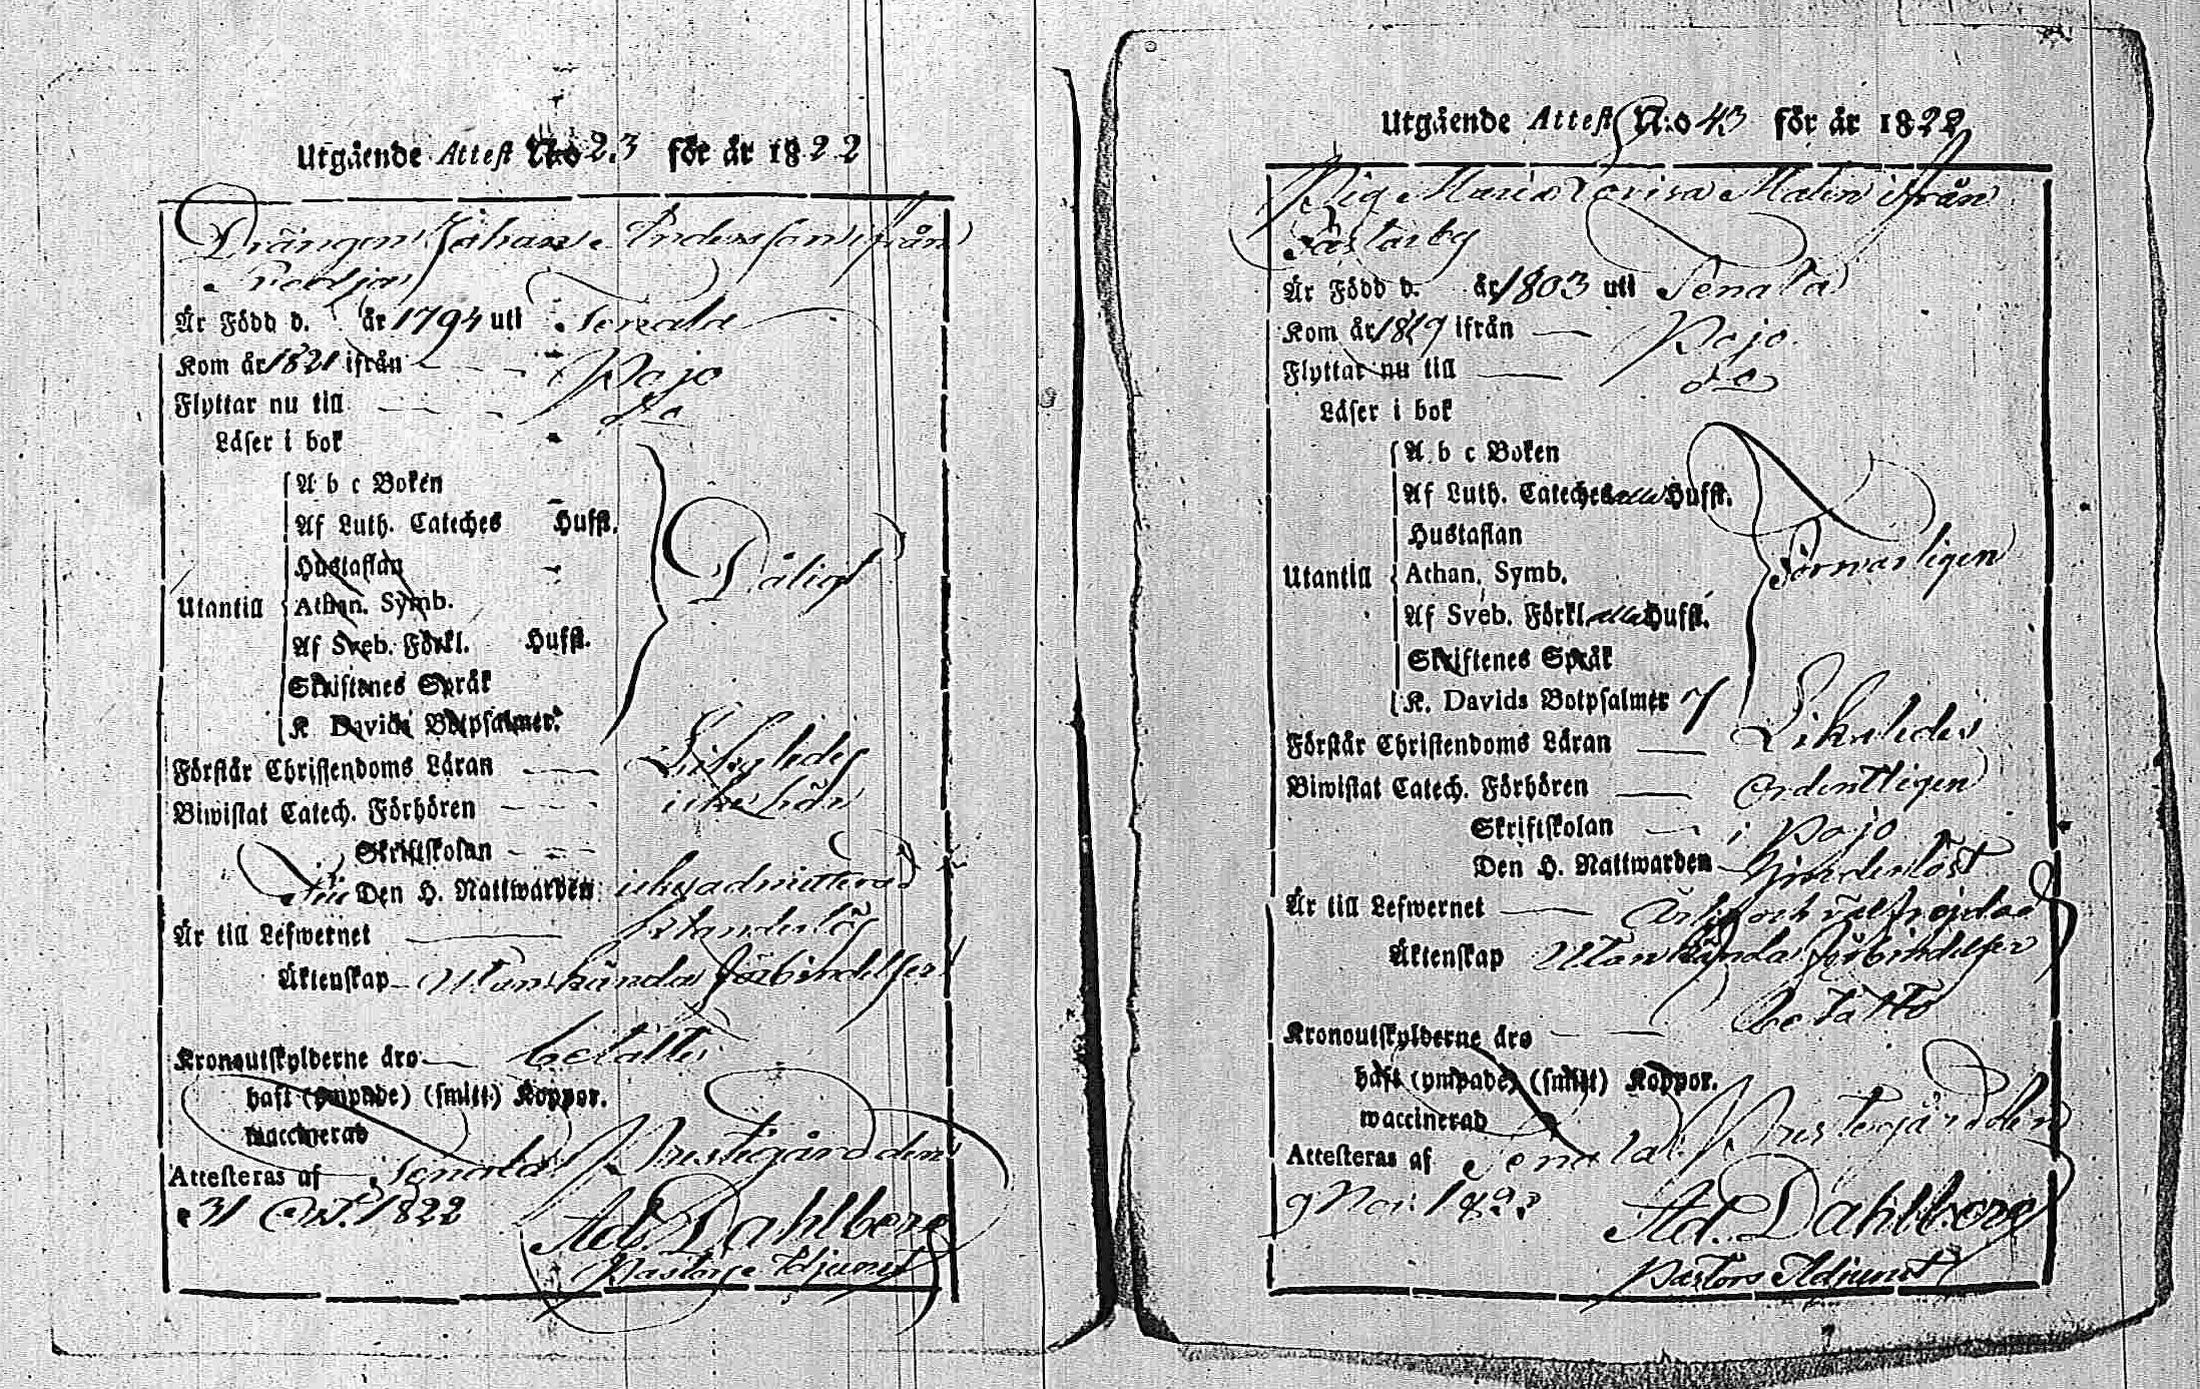 Utgående Attest N:o 23 för år 1822
Drängen Johan Andersson ifrån
Är Född d. år 1794 uti Tenala
Kom år 1821 ifrån Pojo
Flyttar nu till do
Läser i bok
A b c Boken
Af Luth. Cateches Hufst.
Hustaflan
Utantill Athan. Symb. Dåligt
Af Sveb. Förkl. Hufst.
Skriftenes Språk
K Davids Botpsalmer.
Förstår Christendoms Läran Likaledes
Biwistat Catech. Förhören icke här
Skriftskolan
Den H. Nattwarden icke admitterad
Är till Lefwernet klanderlös
Äktenskap Utan kända förbindelser
Kronoutskylderne äro betalte
haft (ympade) (smitt) Koppor.
waccinerad
Attesteras af Tenala Prestegård den
31 Oct. 1822 Ad. Dahlberg
Pastors Adjunct
Utgående Attest N:o 43 för år 1822
Pig. Maria Lovisa Malin ifrån
Är Född d. år 1803 uti Tenala
Kom år 1819 ifrån Pojo
Flyttar nu till do
Läser i bok
A b c Boken
Af Luth. Cateches alla Hufst.
Hustaflan
Utantill Athan. Symb. Förswarligen
Af Sveb. Förkl. alla Hufst.
Skriftenes Språk
K. Davids Botpsalmer 7
Förstår Christendoms Läran Likaledes
Biwistat Catech. Förhören Ordentligen
Skriftskolan i Pojo
Den H. Nattwarden
Är till Lefwernet Ärlig och väl frejdad
Äktenskap Utan kända förbindelser
Kronoutskylderne äro betalte
haft (ympade) (smitt) Koppor.
waccinerad
Attesteras af Tenala Prestegård den
9 Nov. 1822 Ad. Dahlberg
Pastors Adjunct